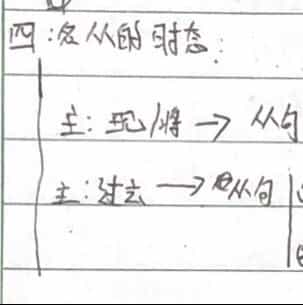 四:名从的时态:
主:现/将 → 从句
主:过去 → 从句